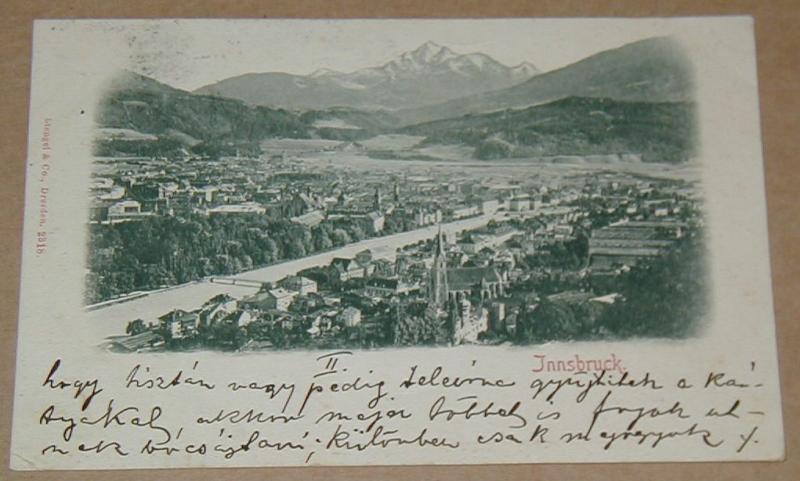 Stengel & Co., Dresden. 2318.
Innsbruck.
II
hogy tisztán vagy pedig teleirva gyüjtitek a kár-
tyákat, akkor majd többet is fogok
nek bocsájtani; különben csak megvagyok